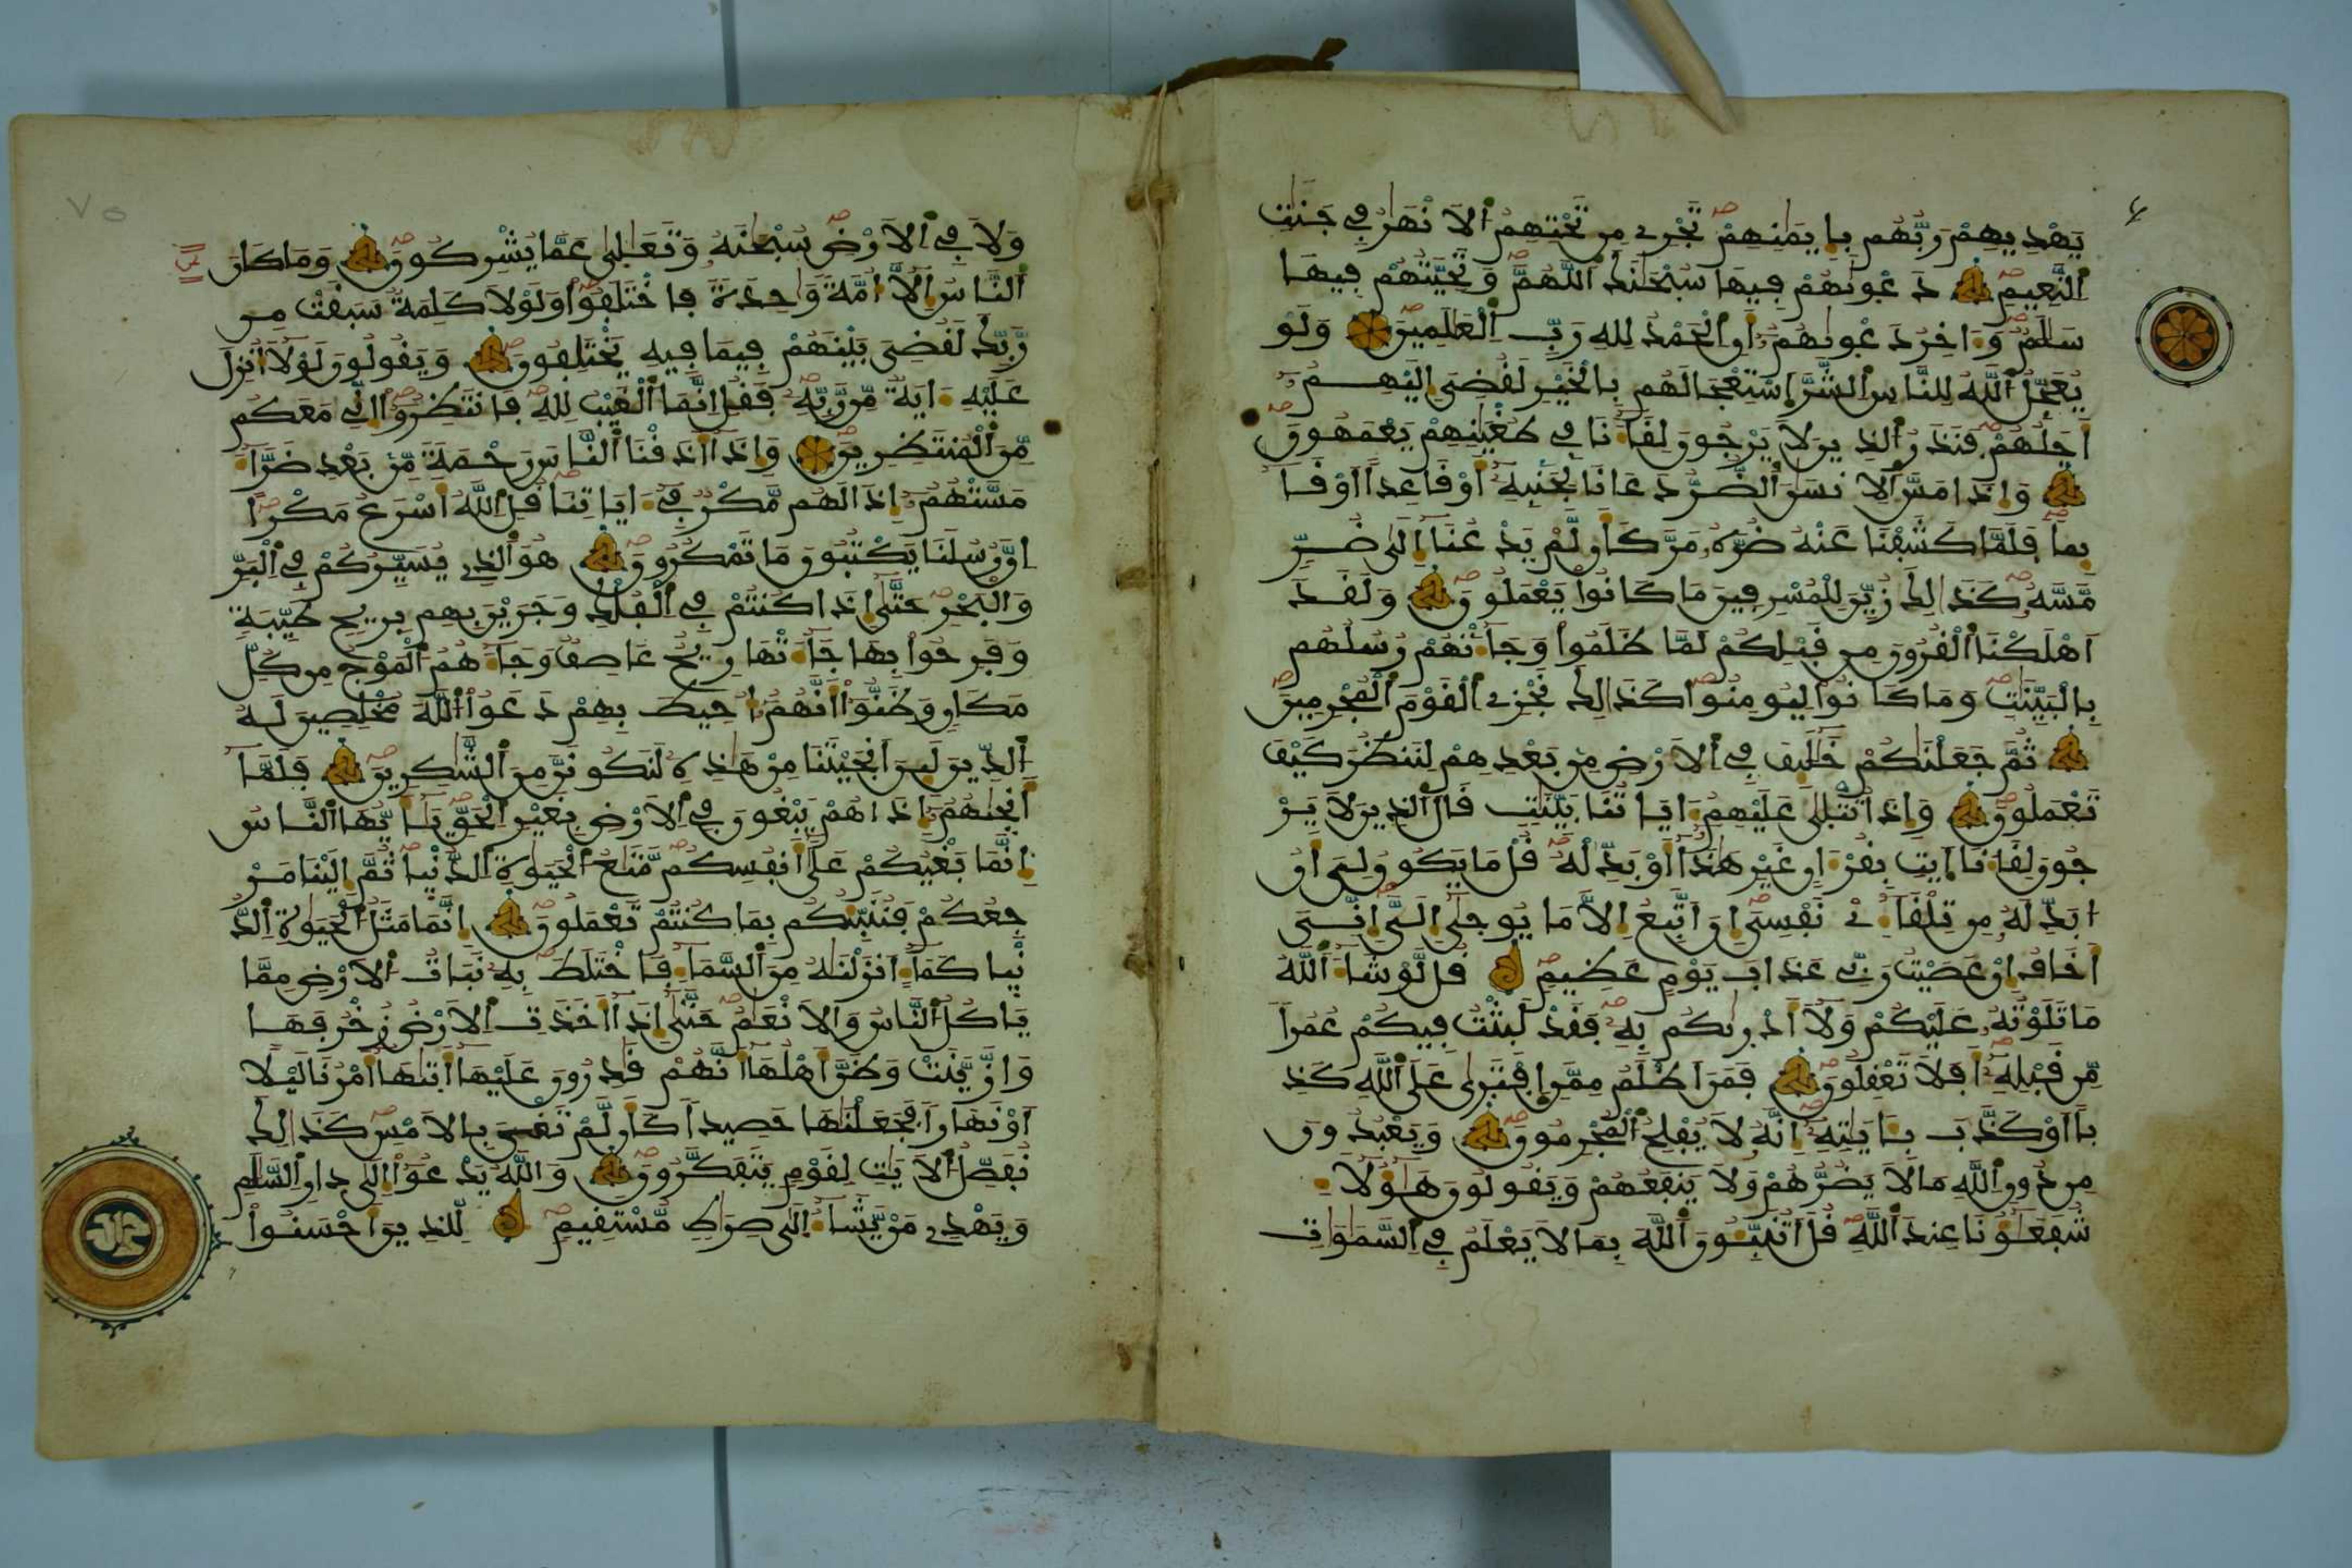 يَهْدِيهِمْ رَبُّهُم بِإِيمَٰنِهِمْ تَجْرِے مِن تَحْتِهِمُ الَانْهَٰرُ فِے جَنَّٰتِ
اِ۬لنَّعِيمِ دَعْو۪يٰهُمْ فِيهَا سُبْحَٰنَكَ اَ۬للَّهُمَّ وَتَحِيَّتُهُمْ فِيهَا
سَلَٰمٌ وَءَاخِرُ دَعْو۪يٰهُمُۥٓ أَنِ اِ۬لْحَمْدُ لِلهِ رَبِّ اِ۬لْعَٰلَمِينَ وَلَوْ
يُعَجِّلُ اُ۬للَّهُ لِلنَّاسِ اِ۬لشَّرَّ اَ۪سْتِعْجَالَهُم بِالْخَيْرِ لَقُضِيَ إِلَيْهِمُۥٓ
أَجَلُهُمْ فَنَذَرُ اُ۬لذِينَ لَا يَرْجُونَ لِقَآءَنَا فِے طُغْيَٰنِهِمْ يَعْمَهُونَ
وَإِذَا مَسَّ اَ۬لِانسَٰنَ اَ۬لضُّرُّ دَعَانَا لِجَنۢبِهِۦٓ أَوْ قَاعِداً اَوْ قَآ
ئِماً فَلَمَّا كَشَفْنَا عَنْهُ ضُرَّهُۥ مَرَّ كَأَن لَّمْ يَدْعُنَآ إِلَيٰ ضُرّٖ
مَّسَّهُۥ كَذَٰلِكَ زُيِّنَ لِلْمُسْرِفِينَ مَا كَانُواْ يَعْمَلُونَ وَلَقَدَ
اَهْلَكْنَا اَ۬لْقُرُونَ مِن قَبْلِكُمْ لَمَّا ظَلَمُواْ وَجَآءَتْهُمْ رُسُلُهُم
بِالْبَيِّنَٰتِ وَمَا كَانُواْ لِيُومِنُواْ كَذَٰلِكَ نَجْزِے اِ۬لْقَوْمَ اَ۬لْمُجْرِمِينَ
ثُمَّ جَعَلْنَٰكُمْ خَلَٰٓئِفَ فِے اِ۬لَارْضِ مِنۢ بَعْدِهِمْ لِنَنظُرَ كَيْفَ
تَعْمَلُونَ وَإِذَا تُتْل۪يٰ عَلَيْهِمُۥٓ ءَايَاتُنَا بَيِّنَٰتٖ قَالَ اَ۬لذِينَ لَا يَرْ
جُونَ لِقَآءَنَا اَ۪يتِ بِقُرْءَانٍ غَيْرِ هَٰذَآ أَوْ بَدِّلْهُ قُلْ مَا يَكُونُ لِيَ أَنُ
ا۟بَدِّلَهُۥ مِن تِلْقَآءِےْ نَفْسِيَ إِنَ اَتَّبِعُ إِلَّا مَا يُوح۪يٰٓ إِلَيَّ إِنِّيَ
أَخَافُ إِنْ عَصَيْتُ رَبِّے عَذَابَ يَوْمٍ عَظِيمٖ قُل لَّوْ شَآءَ اَ۬للَّهُ
مَا تَلَوْتُهُۥ عَلَيْكُمْ وَلَآ أَدْر۪يٰكُم بِهِۦ فَقَدْ لَبِثْتُ فِيكُمْ عُمُراً
مِّن قَبْلِهِۦٓ أَفَلَا تَعْقِلُونَ فَمَنَ اَظْلَمُ مِمَّنِ اِ۪فْتَر۪يٰ عَلَي اَ۬للَّهِ كَذِ
باً اَوْ كَذَّبَ بِـَٔايَٰتِهِۦٓ إِنَّهُۥ لَا يُفْلِحُ اُ۬لْمُجْرِمُونَ وَيَعْبُدُونَ
مِن دُونِ اِ۬للَّهِ مَا لَا يَضُرُّهُمْ وَلَا يَنفَعُهُمْ وَيَقُولُونَ هَٰٓؤُلَآءِ
شُفَعَٰٓؤُنَا عِندَ اَ۬للَّهِ قُلَ اَتُنَبِّـُٔونَ اَ۬للَّهَ بِمَا لَا يَعْلَمُ فِے اِ۬لسَّمَٰوَٰتِ
وَلَا فِے اِ۬لَارْضِ سُبْحَٰنَهُۥ وَتَعَٰل۪يٰ عَمَّا يُشْرِكُونَ وَمَا كَانَ
اَ۬لنَّاسُ إِلَّآ أُمَّةً وَٰحِدَةً فَاخْتَلَفُواْ وَلَوْلَا كَلِمَةٌ سَبَقَتْ مِن
رَّبِّكَ لَقُضِيَ بَيْنَهُمْ فِيمَا فِيهِ يَخْتَلِفُونَ وَيَقُولُونَ لَوْلَآ أُنزِلَ
عَلَيْهِ ءَايَةٌ مِّن رَّبِّهِۦ فَقُلِ اِنَّمَا اَ۬لْغَيْبُ لِلهِ فَانتَظِرُوٓاْ إِنِّے مَعَكُم
مِّنَ اَ۬لْمُنتَظِرِينَ وَإِذَآ أَذَقْنَا اَ۬لنَّاسَ رَحْمَةً مِّنۢ بَعْدِ ضَرَّآءَ
مَسَّتْهُمُۥٓ إِذَا لَهُم مَّكْرٌ فِےٓ ءَايَاتِنَا قُلِ اِ۬للَّهُ أَسْرَعُ مَكْراً
اِنَّ رُسُلَنَا يَكْتُبُونَ مَا تَمْكُرُونَ هُوَ اَ۬لذِے يُسَيِّرُكُمْ فِے اِ۬لْبَرِّ
وَالْبَحْرِ حَتَّيٰٓ إِذَا كُنتُمْ فِے اِ۬لْفُلْكِ وَجَرَيْنَ بِهِم بِرِيحٖ طَيِّبَةٖ
وَفَرِحُواْ بِهَا جَآءَتْهَا رِيحٌ عَاصِفٌ وَجَآءَهُمُ اُ۬لْمَوْجُ مِن كُلِّ
مَكَانٖ وَظَنُّوٓاْ أَنَّهُمُۥٓ أُحِيطَ بِهِمْ دَعَوُاْ اُ۬للَّهَ مُخْلِصِينَ لَهُ
اُ۬لدِّينَ لَئِنَ اَنجَيْتَنَا مِنْ هَٰذِهِۦ لَنَكُونَنَّ مِنَ اَ۬لشَّٰكِرِينَ فَلَمَّآ
أَنج۪يٰهُمُۥٓ إِذَا هُمْ يَبْغُونَ فِے اِ۬لَارْضِ بِغَيْرِ اِ۬لْحَقِّ يَٰٓأَيُّهَا اَ۬لنَّاسُ
إِنَّمَا بَغْيُكُمْ عَلَيٰٓ أَنفُسِكُم مَّتَٰعُ اُ۬لْحَيَوٰةِ اِ۬لدُّنْي۪ا ثُمَّ إِلَيْنَا مَرْ
جِعُكُمْ فَنُنَبِّئُكُم بِمَا كُنتُمْ تَعْمَلُونَ إِنَّمَا مَثَلُ اُ۬لْحَيَوٰةِ اِ۬لدُّ
نْي۪ا كَمَآءٍ اَنزَلْنَٰهُ مِنَ اَ۬لسَّمَآءِ فَاخْتَلَطَ بِهِۦ نَبَاتُ اُ۬لَارْضِ مِمَّا
يَاكُلُ اُ۬لنَّاسُ وَالَانْعَٰمُ حَتَّيٰٓ إِذَآ أَخَذَتِ اِ۬لَارْضُ زُخْرُفَهَا
وَازَّيَّنَتْ وَظَنَّ أَهْلُهَآ أَنَّهُمْ قَٰدِرُونَ عَلَيْهَآ أَت۪يٰهَآ أَمْرُنَا لَيْلاً
اَوْ نَهَاراً فَجَعَلْنَٰهَا حَصِيداً كَأَن لَّمْ تَغْنَ بِالَامْسِ كَذَٰلِكَ
نُفَصِّلُ اُ۬لَايَٰتِ لِقَوْمٖ يَتَفَكَّرُونَ وَاللَّهُ يَدْعُوٓاْ إِلَيٰ د۪ارِ اِ۬لسَّلَٰمِ
وَيَهْدِے مَنْ يَّشَآءُ اِلَيٰ صِرَٰطٖ مُّسْتَقِيمٖ لِّلذِينَ أَحْسَنُواْ